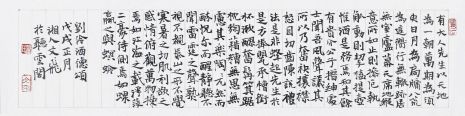 有大人先生以天地
為一朝萬期為須
臾日月為扃牖八荒
為庭衢行無轍跡居
無室廬幕天席地縱
意所如止則操卮執
觚動則挈榼提壺
惟酒是務焉知其餘
有貴介公子搢紳處
士聞吾風聲議其
所以乃奮袂攘襟
怒目切齒陳說禮
法是非鋒起先生於
是方捧罌承糟銜
杯漱醪奮髯箕踞
枕麴藉糟無思無
慮其樂陶陶兀然而
醉恍爾而醒靜聽不
聞雷霆之聲熟
視不睹泰山之形不覺
寒暑之切肌利欲之
感情俯觀萬物擾
擾焉如江漢之載浮萍
二豪侍側焉如蜾
蠃之與螟蛉
劉伶酒德頌
戊戌正月
湘
於聽雲閣